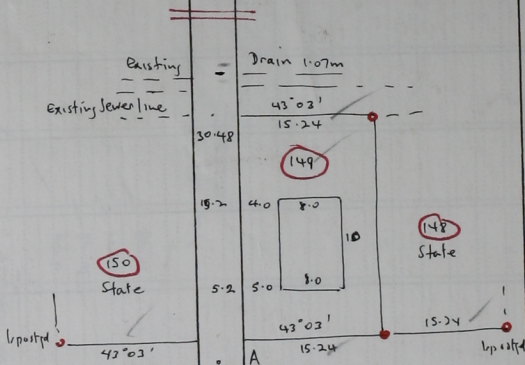 Existing
Drain 1.07m
Existing Sewer line
43°03'
15.24
30.48
149
15.2
4.0
8.0
10
148
State
150
State
5.2
5.0
8.0
43°03'
15.24
15.24
43°03'
A